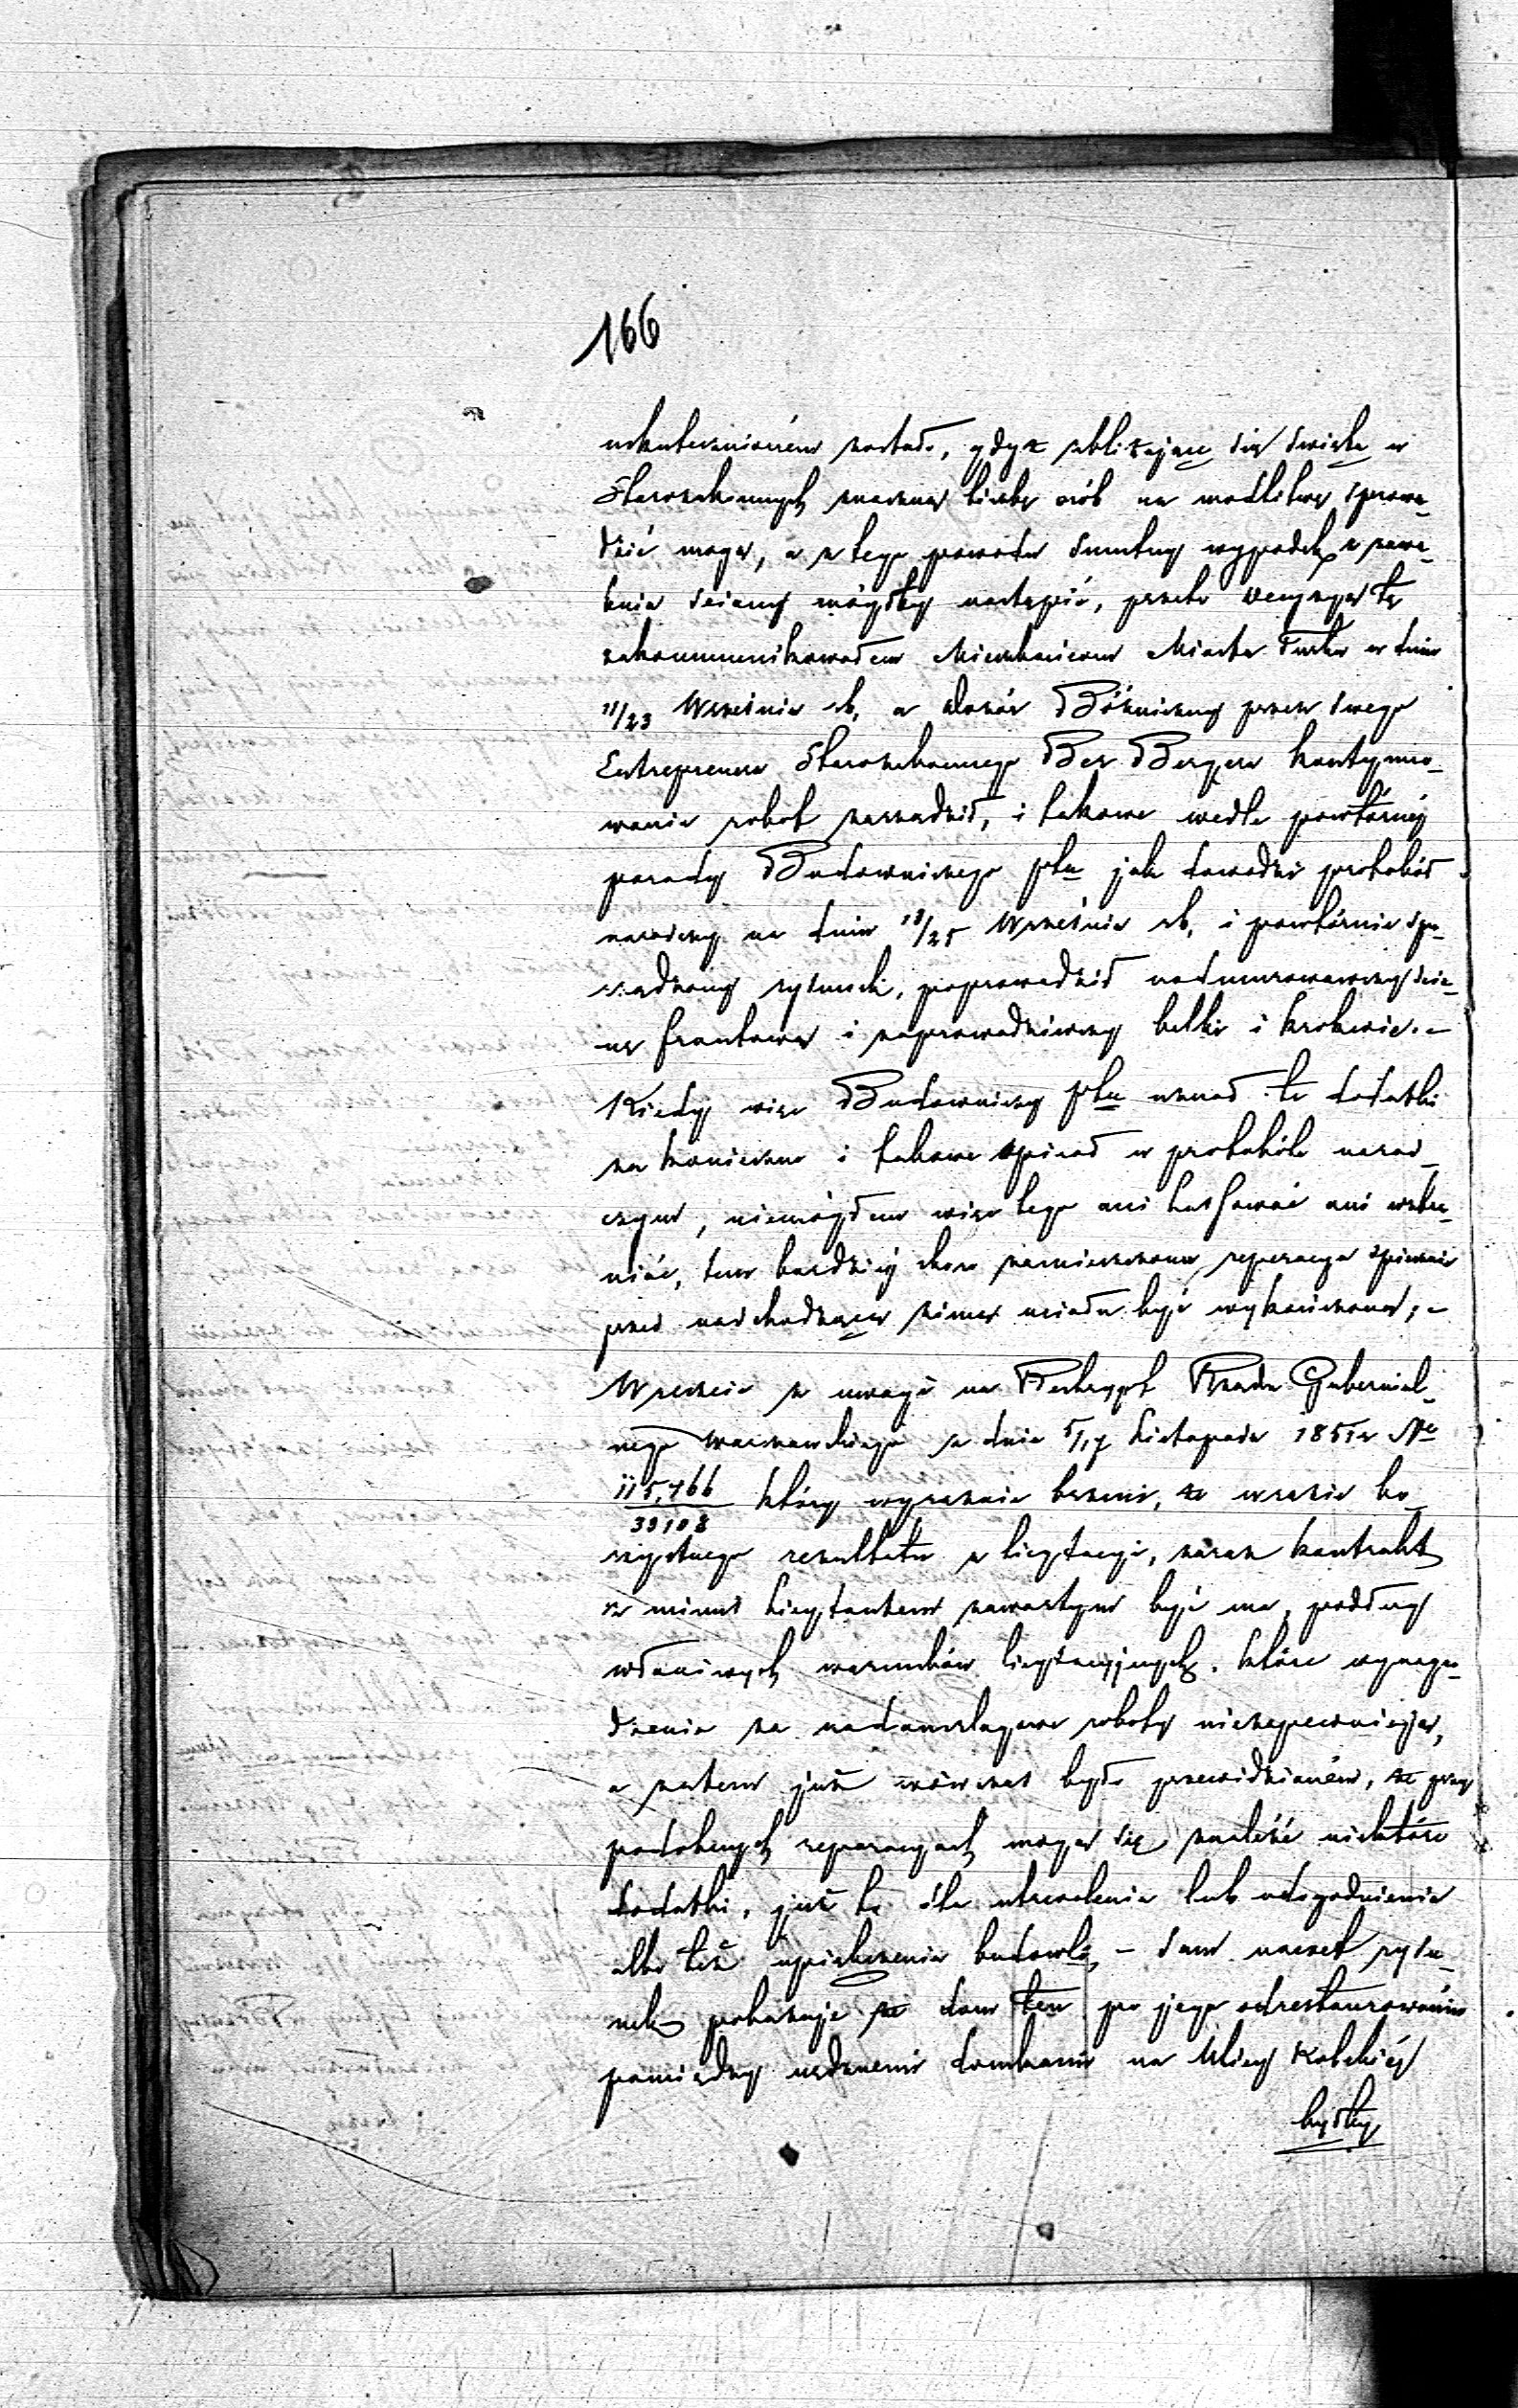 166
uskutecznioném zostało, gdyż zbliżające się święta u
Starozakonnych znaczną liczbę osób na modlitwę sprowa-
dzić mogą, a z tego powodu smutny wypadek z zawa-
lenia ściany mógłby nastąpić, przeto decyzyą tę
zakommunikowałem Mieszkańcom Miasta Turku w dniu
11/23 Września rb, a dozór Bóżniczny przez swego
Entreprenera Starozakonnego Ber Bergera kontynuo-
wanie robot zarządził, i takowe wedle powtórnéj
porady Budowniczego Ptu jak dowodzi protokół
naradczy na dniu 13/25 Września rb, i powtórnie spo-
rządzony rysunek, poprowadził nadmurowawszy ścia-
nę frontową i zaprowadziwszy belki i krokwie.-
Kiedy więc Budowniczy Ptu uznał te dodatki
za konieczne i takowe opisał w protokóle narad-
czym, niemógłem więc tego ani tamować ani wzbra-
niać, tem bardziéj skoro zamieszczona reperacya śpiesznie
przed nadchodzącą zimą miała być wykończoną;-
Wreszcie z uwagi na Reskrypt Rządu Gubernial-
nego Warszawskiego z dnia 5/17 Listopada 1851 r No
115,466/39108 który wyraźnie brzmi, że w razie ko-
rzystnego rezultatu z licytacyi, zaraz kontrakt
z minus licytantem zawartym być ma, podług
właściwych warunków licytacyjnych, które wynagro-
dzenia za nadanszlagowe roboty niezapewniają,
a zatem już wówczas było przewidzianém, że przy
podobnych reparacyach mogą się znaleźć niektóre
dodatki, już to dla utrwalenia lub udogodnienia
albo też upiększenia budowli,- sam nawet rysu-
nek pokazuje że dom ten po jego odrestaurowaniu
pomiędzy nędznemi domkami na Ulicy Kolskiéj
byłby